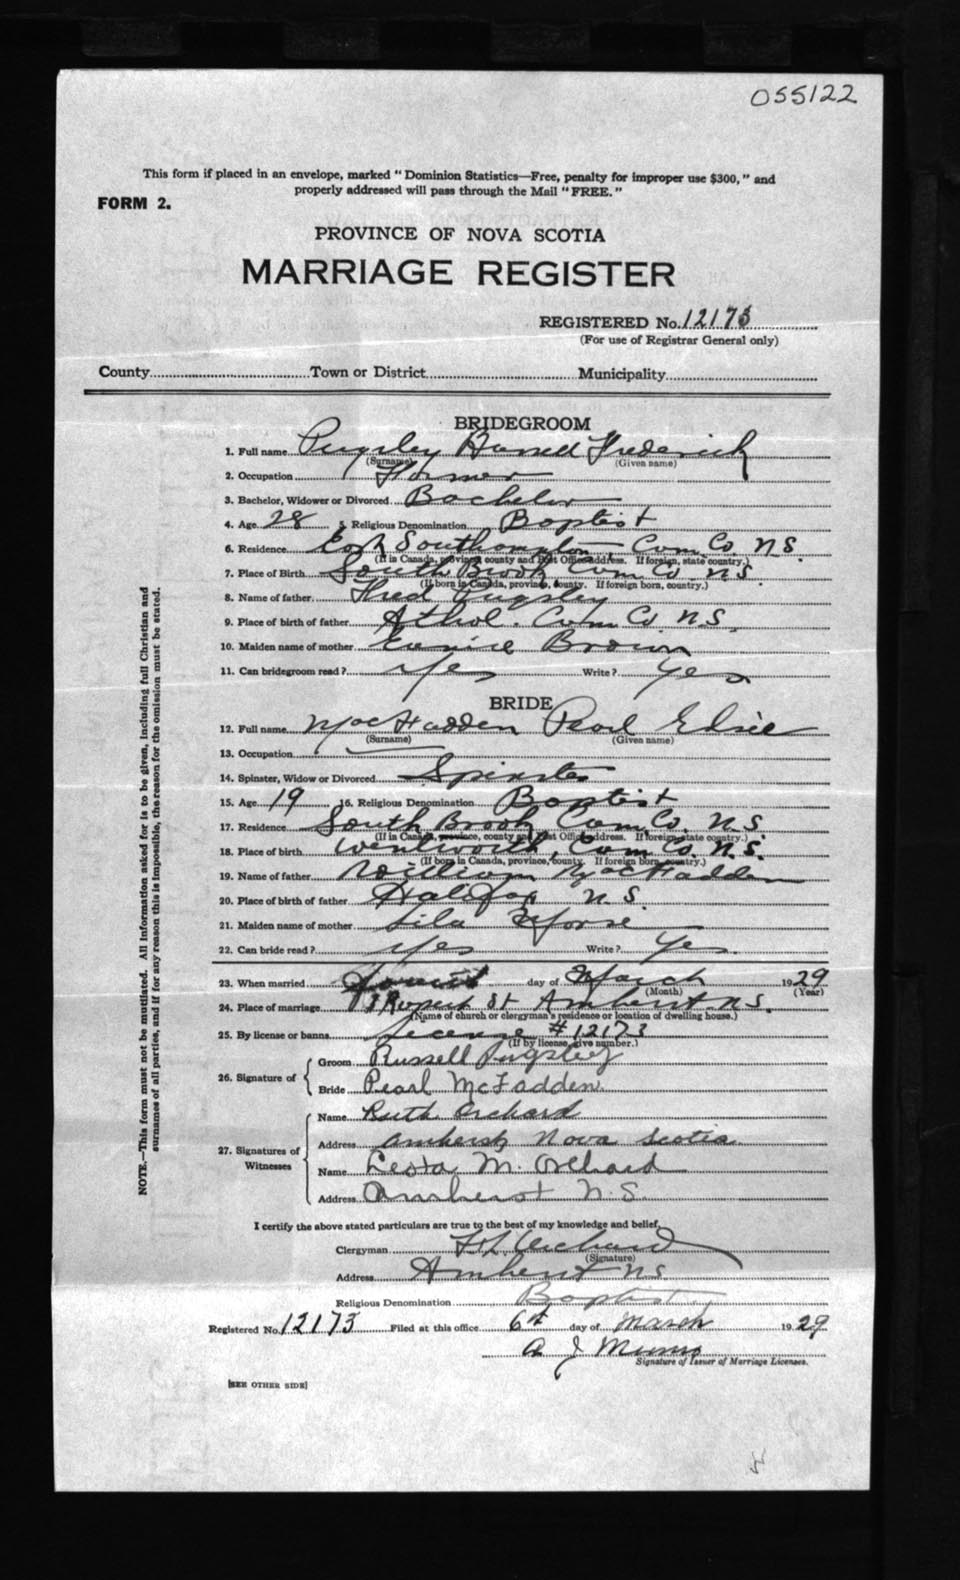 055122
This form if placed in an envelope, marked "Dominion Statistics—Free, penalty for improper use $300," and
properly addressed will pass through the Mail "FREE."
FORM 2.
PROVINCE OF NOVA SCOTIA
MARRIAGE REGISTER
REGISTERED No. 12173
(For use of Registrar General only)
County Town or District Municipality
BRIDEGROOM
1. Full name Pugsley Russell Frederick
(Surname) (Given name)
2. Occupation Farmer
3. Bachelor, Widower or Divorced Bachelor
4. Age 28 5. Religious Denomination Baptist
6. Residence East Southampton Cum. Co. N.S.
(If in Canada, province county and Post Office address. If foreign, state country.)
7. Place of Birth South Brook Cum. Co. N.S.
(If born in Canada, province, county. If foreign born, country.)
8. Name of father Fred Pugsley
9. Place of birth of father Athol. Cum. Co. N.S.
10. Maiden name of mother Eunice Brown
11. Can bridegroom read? Yes Write? Yes
BRIDE
12. Full name MacFadden Pearl Elsie
(Surname) (Given name)
13. Occupation
14. Spinster, Widow or Divorced Spinster
15. Age 19 16. Religious Denomination Baptist
17. Residence South Brook Cum. Co. N.S.
(If in Canada, province, county and Post Office address. If foreign, state country.)
18. Place of birth Wentworth, Cum. Co. N.S.
(If born in Canada, province, county. If foreign born, country.)
19. Name of father William MacFadden
20. Place of birth of father Halifax N.S.
21. Maiden name of mother Lila Morse
22. Can bride read? Yes Write? Yes
23. When married day of March 1929
(Month) (Year)
24. Place of marriage Rupert St Amherst N.S.
(Name of church or clergyman's residence or location of dwelling house.)
25. By license or banns License # 12173
(If by license, give number.)
26. Signature of Groom Russell Pugsley
Bride Pearl McFadden
27. Signatures of Witnesses Name Ruth Orchard
Address Amherst, Nova Scotia
Name Leota M. Orchard
Address Amherst N.S.
I certify the above stated particulars are true to the best of my knowledge and belief,
Clergyman Orchard
(Signature)
Address Amherst N.S.
Religious Denomination Baptist
Registered No. 12173 Filed at this office 6th day of March 1929
A J
Signature of Issuer of Marriage Licenses.
[SEE OTHER SIDE]
NOTE.—This form must not be mutilated. All information asked for is to be given, including full Christian and
surnames of all parties, and if for any reason this is impossible, the reason for the omission must be stated.